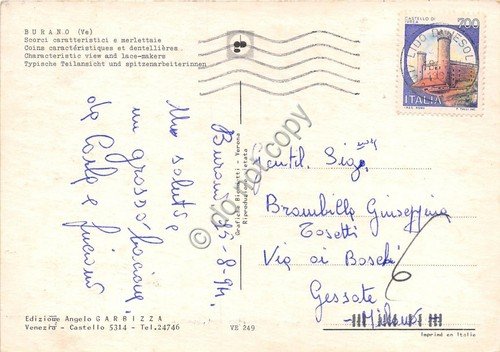 BURANO (Ve)
Scorci caratteristici e merlettaie
Coins caractéristiques et dentellières
Characteristic view and lace-makers
Typische Teilansicht und spitzenarbeiterinnen
CASTELLO DI
700
LIDO DI JESOLO
ITALIA
Burano 15-8-94.
Un saluto e
un grosso bacione
da Carla e Luciano
Grafiche Biondetti - Verona
Riproduzione vietata
do not copy
Gentil. Sig.
Brambilla Giuseppina
Tosetti
Via ai Boschi
6
Gessate
Milano
Edizione Angelo GARBIZZA
Venezia - Castello 5314 - Tel.24746
VE 249
Imprimé en Italie